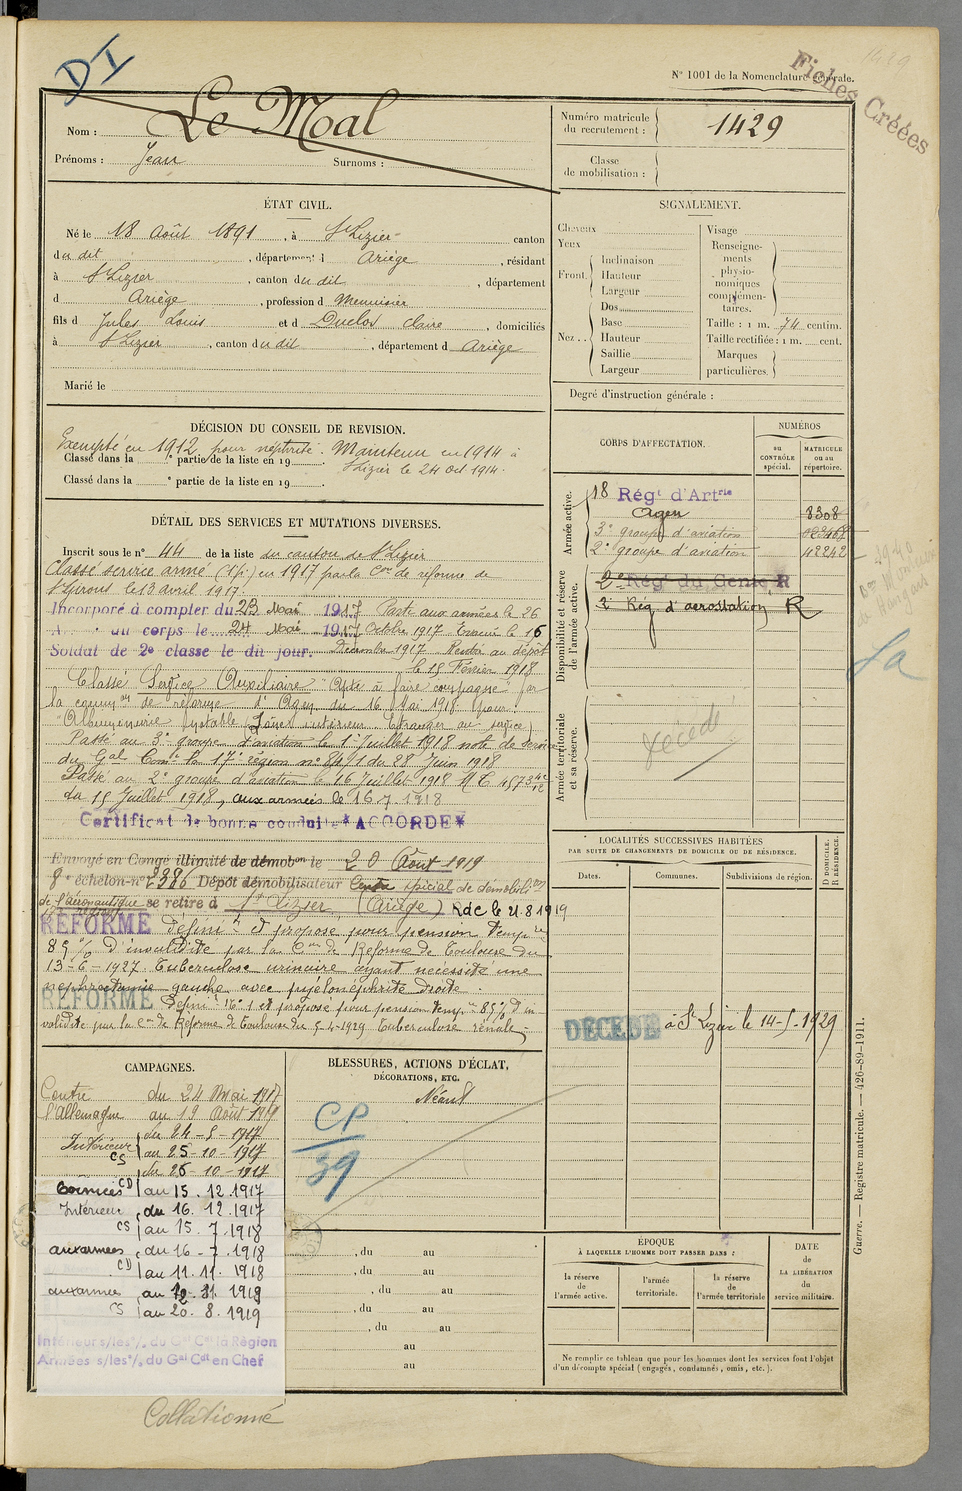 DI
N° 1001 de la Nomenclature générale.
1429
Fiches Créées
Nom : Le Moal
Prénoms : Jean Surnoms :
Numéro matricule du recrutement : 1429
Classe de mobilisation :
ÉTAT CIVIL.
Né le 18 Août 1891, à St Lizier canton
du dit, département d Ariége, résidant
à St Lizier, canton du dit, département
d Ariège, profession d Menuisier
fils d Jules Louis et d Duclos Claire, domiciliés
à St Lizier, canton du dit, département d Ariège
Marié le
SIGNALEMENT.
Cheveux
Yeux
Front. Inclinaison
Hauteur
Largeur
Nez .. Dos
Base
Hauteur
Saillie
Largeur
Visage
Renseignements physionomiques complémentaires.
Taille : 1 m. 74 centim.
Taille rectifiée : 1 m. cent.
Marques particulières.
Degré d'instruction générale :
DÉCISION DU CONSEIL DE REVISION.
Exempté en 1912 pour néphrite. Maintenu en 1914 à
Classé dans la ° partie de la liste en 19 . St Lizier le 24 Oct 1914.
Classé dans la ° partie de la liste en 19 .
DÉTAIL DES SERVICES ET MUTATIONS DIVERSES.
Inscrit sous le n° 44 de la liste du canton de St Lizier
Classé service armé (1 p.) en 1917 par la Con de réforme de
St Girons le 13 avril 1917.
Incorporé à compter du 23 Mai 1917 Parti aux armées le 26
A au corps le 24 Mai 1917 Octobre 1917 Evacué le 16
Soldat de 2e classe le dit jour. Décembre 1917 Rentré au dépôt
le 15 Février 1918
Classé Service Auxiliaire "Apte à faire campagne" par
la comm on de réforme d'Agen du 16 Mai 1918 pour
"Albuminurie instable (Zône intérieur Etranger au service)
Passé au 3e groupe d'aviation le 1er Juillet 1918 note de service
du Gal Comt la 17e région n° 841 du 28 Juin 1918
Passé au 2e groupe d'aviation le 16 Juillet 1918
du 15 Juillet 1918, aux armées le 16.7.1918
Certificat de bonne conduite *ACCORDE*
Envoyé en Congé illimité de démobon le 20 Août 1919
8e échelon n° 2386 Dépôt démobilisateur Centre spécial de démobilion
de l'aéronautique se retire à St Lizier (Ariège) Rdc le 21.8.1919
RÉFORMÉ Définit et proposé pour pension Temp re
85 % d'invalidité par la Con de Réforme de Toulouse du
13-6-1927. Tuberculose urinaire ayant nécessité une
néphrectomie gauche avec pyélonéphrite droite.
RÉFORMÉ Définit N° 1 et proposé pour pension Temp re 85 % d'in
validité par la Con de Réforme de Toulouse du 5-4-1929 Tuberculose rénale.
CORPS D'AFFECTATION.
NUMÉROS
au CONTRÔLE spécial.
MATRICULE ou au répertoire.
Armée active.
18 Régt d'Artrie
Agen 8308
3e groupe d'aviation
2e groupe d'aviation 42242
Disponibilité et réserve de l'armée active.
2e Régt du Génie R
2 Rég. d'aerostation R
Armée territoriale et sa réserve.
Décédé
LOCALITÉS SUCCESSIVES HABITÉES
PAR SUITE DE CHANGEMENTS DE DOMICILE OU DE RÉSIDENCE.
Dates. Communes. Subdivisions de région. D DOMICILE. R RÉSIDENCE.
DÉCÉDÉ à St Lizier le 14-5-1929
CAMPAGNES.
Contre du 24 Mai 1917
l'Allemagne au 19 Août 1919
Intérieur du 24-5-1917
CS au 25-10-1917
du 26-10-1917
CD au 15.12.1917
Intérieur du 16.12.1917
CS au 15.7.1918
aux armées du 16-7.1918
CD au 11.11.1918
aux armées
CS au 20.8.1919
Intérieur s/les °/, du Gal Ct la Région
Armées s/les °/, du Gal Cdt en Chef
Collationné
BLESSURES, ACTIONS D'ÉCLAT,
DÉCORATIONS, ETC.
Néant
CP
39
, du au
, du au
, du au
, du au
, du au
au
au
ÉPOQUE
À LAQUELLE L'HOMME DOIT PASSER DANS :
la réserve de l'armée active.
l'armée territoriale.
la réserve de l'armée territoriale
DATE de LA LIBÉRATION du service militaire.
Ne remplir ce tableau que pour les hommes dont les services font l'objet
d'un décompte spécial (engagés, condamnés, omis, etc.).
Guerre. — Registre matricule. — 426-89-1911.